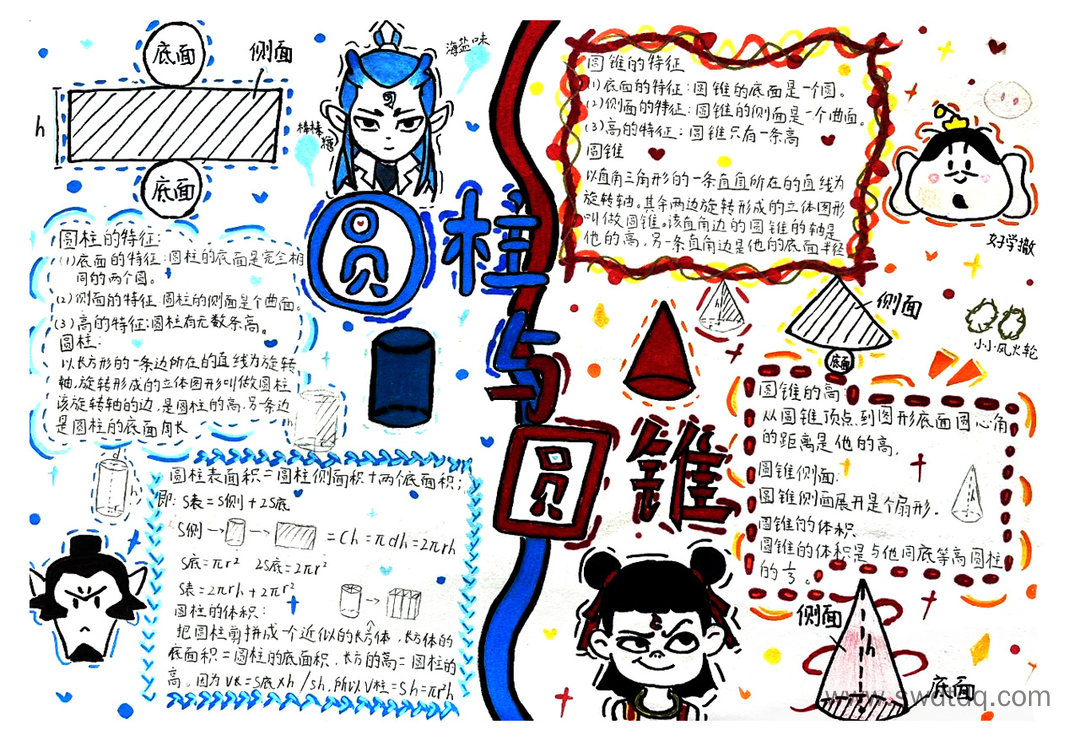 底面
侧面
h
底面
海盐味
棒棒
圆柱与圆锥
圆柱的特征:
(1)底面的特征:圆柱的底面是完全相
同的两个圆。
(2)侧面的特征:圆柱的侧面是个曲面。
(3)高的特征:圆柱有无数条高。
圆柱:
以长方形的一条边所在的直线为旋转
轴,旋转形成的立体图形叫做圆柱
该旋转轴的边,是圆柱的高,另条边
是圆柱的底面周长
圆柱表面积=圆柱侧面积+两个底面积;
即:S表=S侧+2S底
S侧→→=Ch=πdh=2πrh
S底=πr² 2S底=2πr²
S表=2πrh+2πr²
圆柱的体积:
把圆柱剪拼成一个近似的长方体,长方体的
底面积=圆柱的底面积,长方的高=圆柱的
高,因为V长=S底×h/sh,所以V柱=Sh=πrh
圆锥的特征
(1)底面的特征:圆锥的底面是一个圆。
(2)侧面的特征:圆锥的侧面是一个曲面。
(3)高的特征:圆锥只有一条高
圆锥
以直角三角形的一条直直所在的直线为
旋转轴。其余两边旋转形成的立体图形
叫做圆锥。该直角边的圆锥的轴是
他的高,另一条直角边是他的底面半径
好学撤
侧面
底面
小小风火轮
圆锥的高
从圆锥顶点到圆形底面圆心角
的距离是他的高,
圆锥侧面:
圆锥侧面展开是个扇形.
圆锥的体积
圆锥的体积是与他同底等高圆柱
的1/3。
侧面
h
底面
www.swdtdq.com